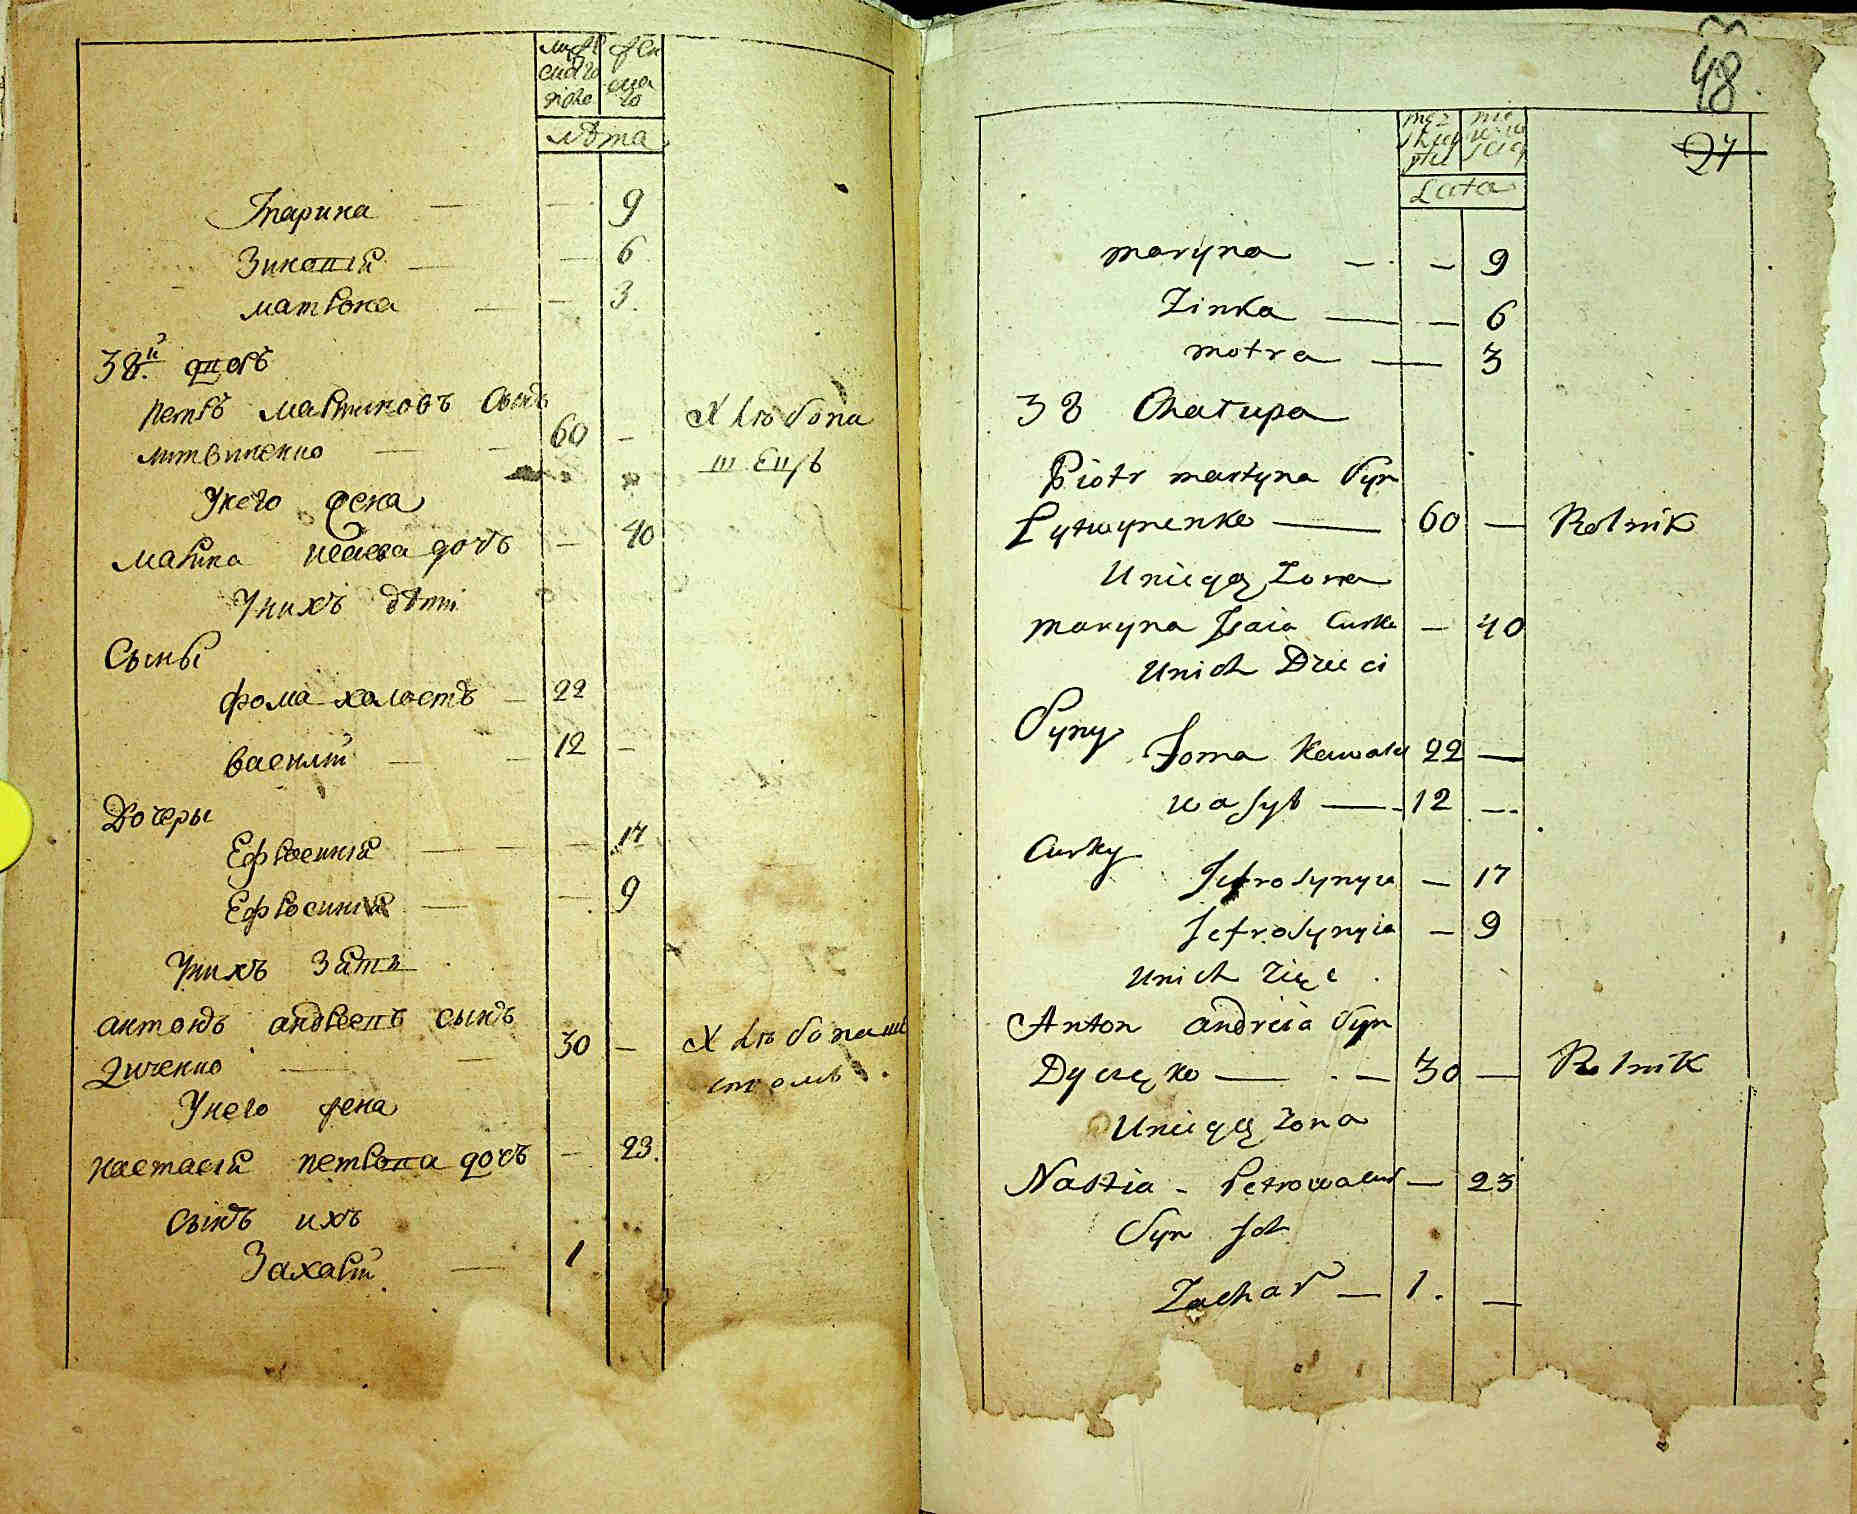 мужеска полу
жен ска го
лѣта
Марина — — 9
Зиновіи — — 6
матрона — — 3.
38й двор
петръ мартиновъ сынъ
литвиненко — 60 — Хлѣбопа
шецъ
У него жена
марина исаева дочъ — 40
У нихъ дѣти
Сыны
фома холостъ — 22
василій — 12 —
Дочеры
Ефросиніи — — 17
Ефросиніи — — 9
У нихъ зать
антонъ андреевъ сынъ
диченко — 30 — Хлѣбопаш
У него жена
настасіи петрова дочъ — 23.
Сынъ ихъ
Захарій — 1
48.
27
męz
Lata
maryna — — 9
Zinka — — 6
motra — 3
38 Chatupa
Piotr martyna Syn
Lytwynenko — 60 — Rolnik
Uniegą Zona
maryna Isaia Curka — 40
Unich Dzieci
Syny
Foma Kawaler 22 —
wasyl — 12 —
Curky
Jefrosynyia — 17
Jefrosynyia — 9
Unich Zięc
Anton andreia Syn
Dyczęko — — 30 — Rolnik
Uniegą Zona
Nastia - Petrowa Cur — 23
Syn Ich
Zachar — 1. —